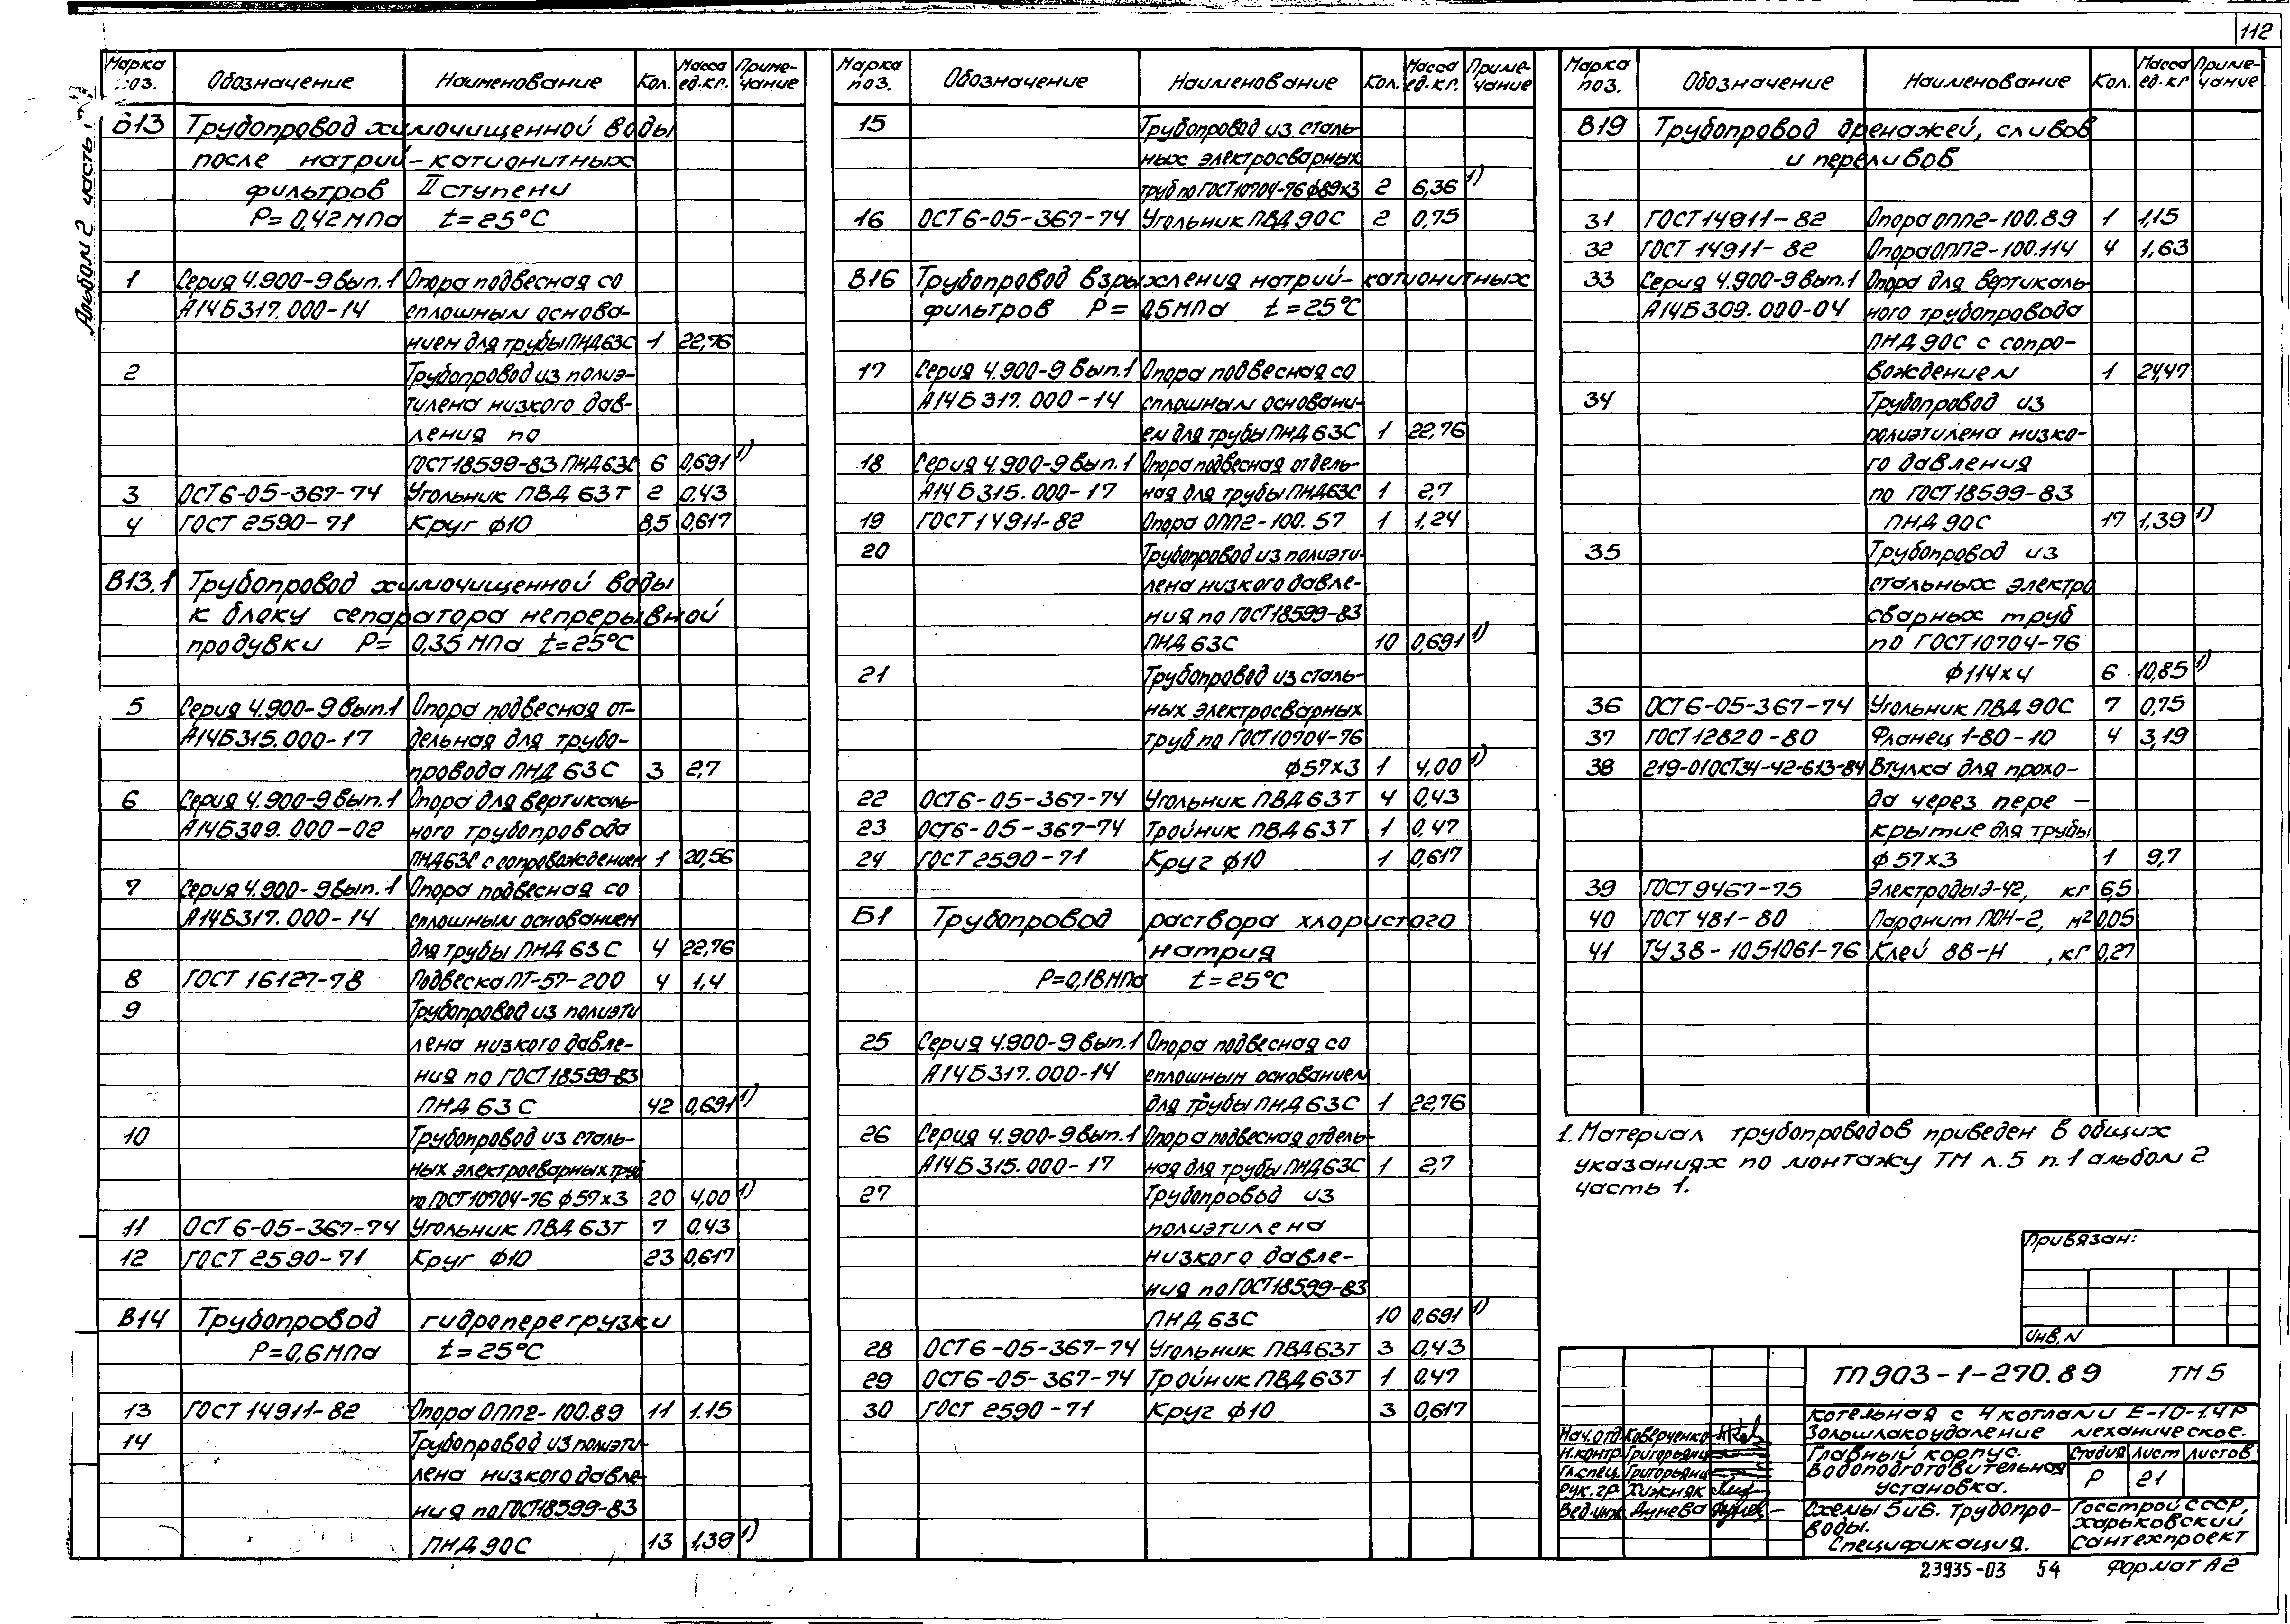 112
Альбом 2 часть 1
Марка поз. Обозначение Наименование Кол. Масса ед.кг. Приме-чание
В13 Трубопровод химочищенной воды
после натрий-катионитных
фильтров II ступени
Р=0,42МПа t=25°С
1 Серия 4.900-9 вып.1 Опора подвесная со
А14Б317.000-14 сплошным основа-
нием для трубы ПНД63С 1 22,76
2 Трубопровод из полиэ-
тилена низкого дав-
ления по
ГОСТ18599-83 ПНД63С 6 0,691 1)
3 ОСТ6-05-367-74 Угольник ПВД 63Т 2 0.43
4 ГОСТ 2590-71 Круг ф10 8,5 0,617
В13.1 Трубопровод химочищенной воды
к блоку сепаратора непрерывной
продувки Р= 0,35 МПа t=25°С
5 Серия 4.900-9 вып.1 Опора подвесная от-
А14Б315.000-17 дельная для трубо-
провода ПНД 63С 3 2,7
6 Серия 4.900-9 вып.1 Опора для вертикаль-
А14Б309.000-02 ного трубопровода
ПНД63С с сопровождением 1 20,56
7 Серия 4.900-9 вып.1 Опора подвесная со
А14Б317.000-14 сплошным основанием
для трубы ПНД 63С 4 22,76
8 ГОСТ 16127-78 Подвеска ПГ-57-200 4 1.4
9 Трубопровод из полиэти
лена низкого давле-
ния по ГОСТ18599-83
ПНД 63С 42 0,691 1)
10 Трубопровод из сталь-
ных электросварных труб
по ГОСТ10704-76 ф57х3 20 4,00 1)
11 ОСТ 6-05-367-74 Угольник ПВД 63Т 7 0.43
12 ГОСТ 2590-71 Круг ф10 23 0,617
В14 Трубопровод гидроперегрузки
Р=0,6МПа t=25°С
13 ГОСТ 14911-82 Опора ОПП2-100.89 11 1.15
14 Трубопровод из полиэти-
лена низкого давле-
ния по ГОСТ18599-83
ПНД 90С 13 1,39 1)
Марка поз. Обозначение Наименование Кол. Масса ед.кг. Приме-чание
15 Трубопровод из сталь-
ных электросварных
труб по ГОСТ10704-76 ф89х3 2 6,36 1)
16 ОСТ6-05-367-74 Угольник ПВД 90С 2 0,75
В16 Трубопровод взрыхления натрий-катионитных
фильтров Р= 0,5МПа t=25°С
17 Серия 4.900-9 вып.1 Опора подвесная со
А14Б317.000-14 сплошным основани-
ем для трубы ПНД 63С 1 22,76
18 Серия 4.900-9 вып.1 Опора подвесная отдель-
А14Б315.000-17 ная для трубы ПНД63С 1 2,7
19 ГОСТ14911-82 Опора ОПП2-100.57 1 1.24
20 Трубопровод из полиэти-
лена низкого давле-
ния по ГОСТ18599-83
ПНД 63С 10 0,691 1)
21 Трубопровод из сталь-
ных электросварных
труб по ГОСТ10704-76
ф57х3 1 4.00 1)
22 ОСТ6-05-367-74 Угольник ПВД63Т 4 0,43
23 ОСТ6-05-367-74 Тройник ПВД63Т 1 0.47
24 ГОСТ2590-71 Круг ф10 1 0,617
Б1 Трубопровод раствора хлористого
натрия
Р=0,18МПа t=25°С
25 Серия 4.900-9 вып.1 Опора подвесная со
А14Б317.000-14 сплошным основанием
для трубы ПНД 63С 1 22,76
26 Серия 4.900-9 вып.1 Опора подвесная отдель-
А14Б315.000-17 ная для трубы ПНД63С 1 2,7
27 Трубопровод из
полиэтилена
низкого давле-
ния по ГОСТ18599-83
ПНД 63С 10 0,691 1)
28 ОСТ6-05-367-74 Угольник ПВД63Т 3 0,43
29 ОСТ6-05-367-74 Тройник ПВД63Т 1 0.47
30 ГОСТ 2590-71 Круг ф10 3 0,617
Марка поз. Обозначение Наименование Кол. Масса ед.кг Приме-чание
В19 Трубопровод дренажей, сливов
и переливов
31 ГОСТ14911-82 Опора ОПП2-100.89 1 1,15
32 ГОСТ 14911-82 Опора ОПП2-100.114 4 1,63
33 Серия 4.900-9 вып.1 Опора для вертикаль-
А14Б309.000-04 ного трубопровода
ПНД 90С с сопро-
вождением 1 24,47
34 Трубопровод из
полиэтилена низко-
го давления
по ГОСТ18599-83
ПНД 90С 17 1,39 1)
35 Трубопровод из
стальных электро
сварных труб
по ГОСТ10704-76
ф114х4 6 10,85 1)
36 ОСТ6-05-367-74 Угольник ПВД 90С 7 0,75
37 ГОСТ12820-80 Фланец 1-80-10 4 3,19
38 219-01ОСТ34-42-613-84 Втулка для прохо-
да через пере-
крытие для трубы
ф57х3 1 9,7
39 ГОСТ9467-75 Электроды Э-42, кг 6,5
40 ГОСТ 481-80 Паронит ПОН-2, м2 0,05
41 ТУ38-1051061-76 Клей 88-Н , кг 0,27
1. Материал трубопроводов приведен в общих
указаниях по монтажу ТМ л.5 п.1 альбом 2
часть 1.
Привязан:
Инв.N
ТП903-1-270.89 ТМ5
Котельная с 4 котлами Е-10-1.4Р
Золошлакоудаление механическое.
Нач.отд. Коверченко
Н.контр Григорьянц
Гл.спец. Григорьянц
Рук.гр Хижняк
Вед.инж. Дунева
Главный корпус.
Водоподготовительная
установка.
Стадия Лист Листов
Р 21
Схемы 5 и 6. Трубопро-
воды.
Спецификация.
Госстрой СССР,
Харьковский
Сантехпроект
23935-03 54 Формат А2